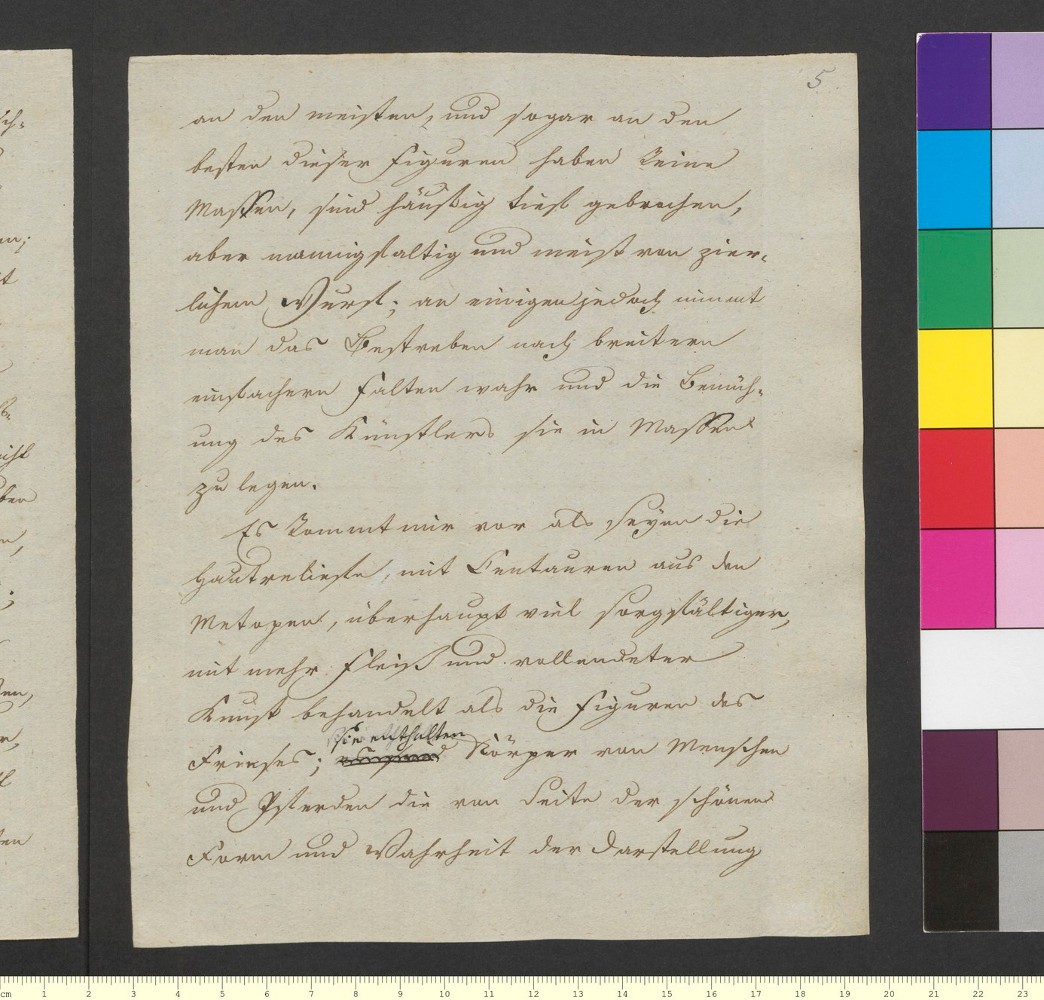 5
an den meisten, und sogar an den
besten dieser Figuren haben keine
Massen, sind häufig tief gebrochen,
aber mannigfaltig und meist von zier-
lichem Wurf; an einigen jedoch nimmt
man das Bestreben nach breitern
einfachern Falten wahr und die Bemüh-
ung des Künstlers sie in Massen
zu legen.
Es kommt mir vor als seyen die
Hautreliefe, mit Centauren aus den
Metopen, überhaupt viel sorgfältiger,
mit mehr Fleiß und vollendeter
Kunst behandelt als die Figuren des
sie enthalten
Frieses; Körper von Menschen
und Pferden die von Seite der schönen
Form und Wahrheit der Darstellung